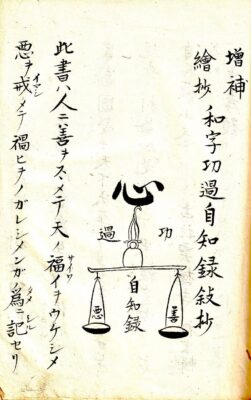 増補
繪抄
和字功過自知録敍抄
心
功
過
自知録
善
悪
此書ハ人ニ善ヲスヽメテ天ノ福イヲウケシメ
サイワ
悪ヲ戒メテ禍ヒヲノガレシメンガ爲ニ記セリ
イマシ
タメ
シル